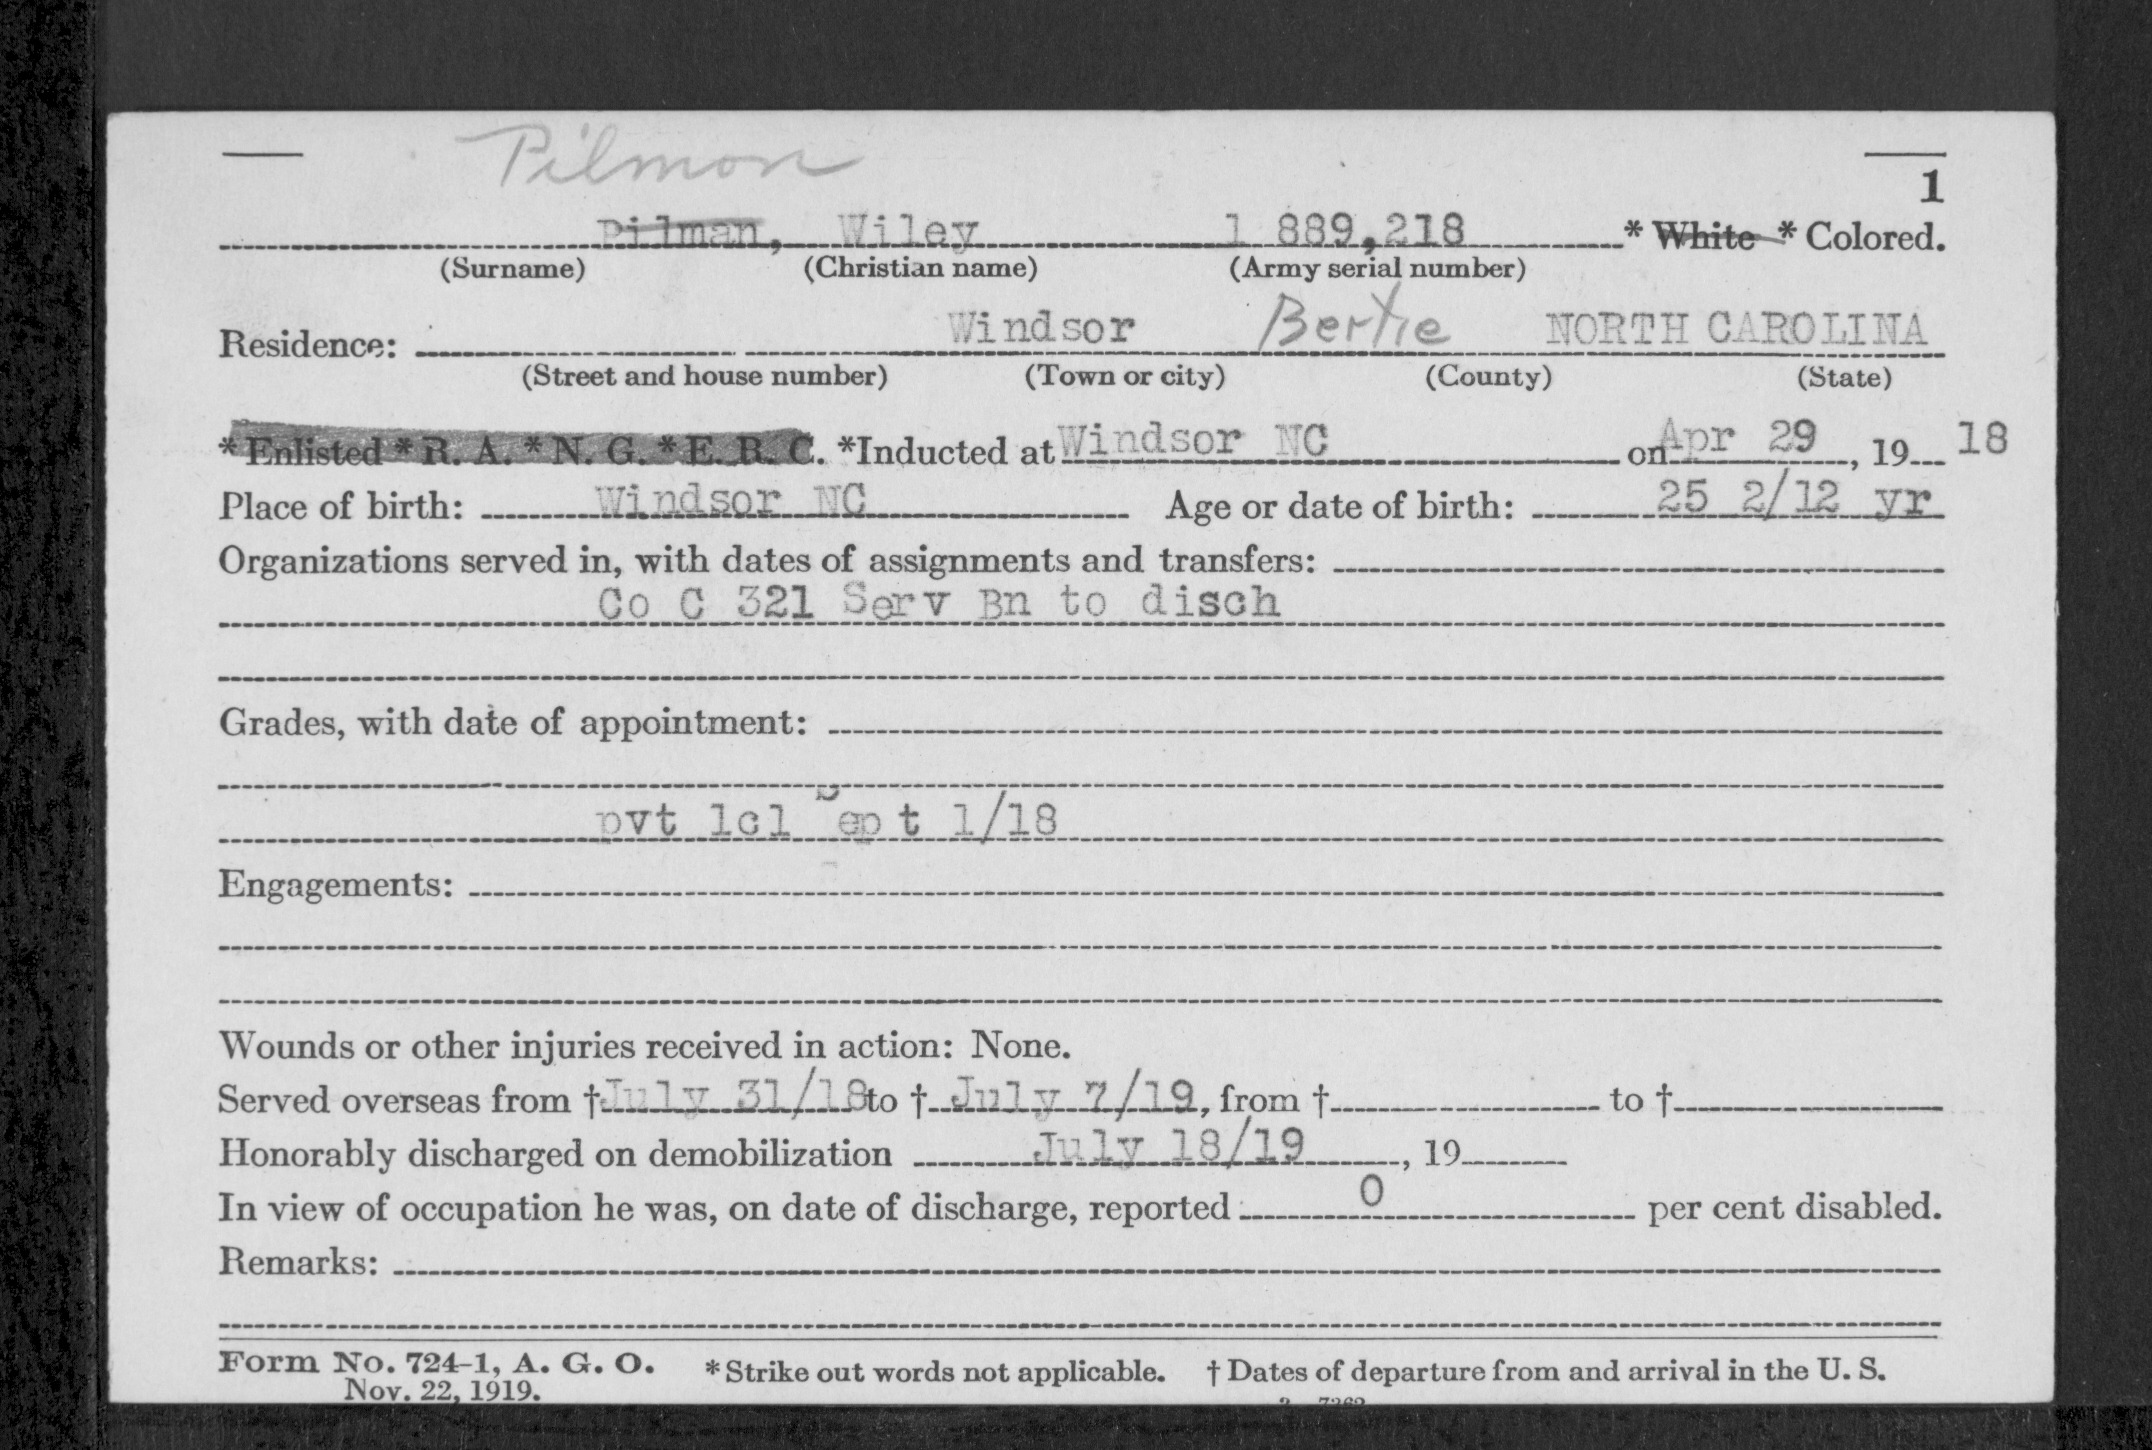 Pilmon
1
Pilman, Wiley 1 889,218 * White * Colored.
(Surname) (Christian name) (Army serial number)
Windsor Bertie NORTH CAROLINA
Residence:
(Street and house number) (Town or city) (County) (State)
* Enlisted * R. A. * N. G. * E. R. C. *Inducted at Windsor NC on Apr 29, 19 18
Place of birth: Windsor NC Age or date of birth: 25 2/12 yr
Organizations served in, with dates of assignments and transfers:
Co C 321 Serv Bn to disch
Grades, with date of appointment:
pvt 1cl Sept 1/18
Engagements:
Wounds or other injuries received in action: None.
Served overseas from † July 31/18 to † July 7/19, from † to †
Honorably discharged on demobilization July 18/19, 19
In view of occupation he was, on date of discharge, reported 0 per cent disabled.
Remarks:
Form No. 724-1, A. G. O. * Strike out words not applicable. † Dates of departure from and arrival in the U. S.
Nov. 22, 1919.